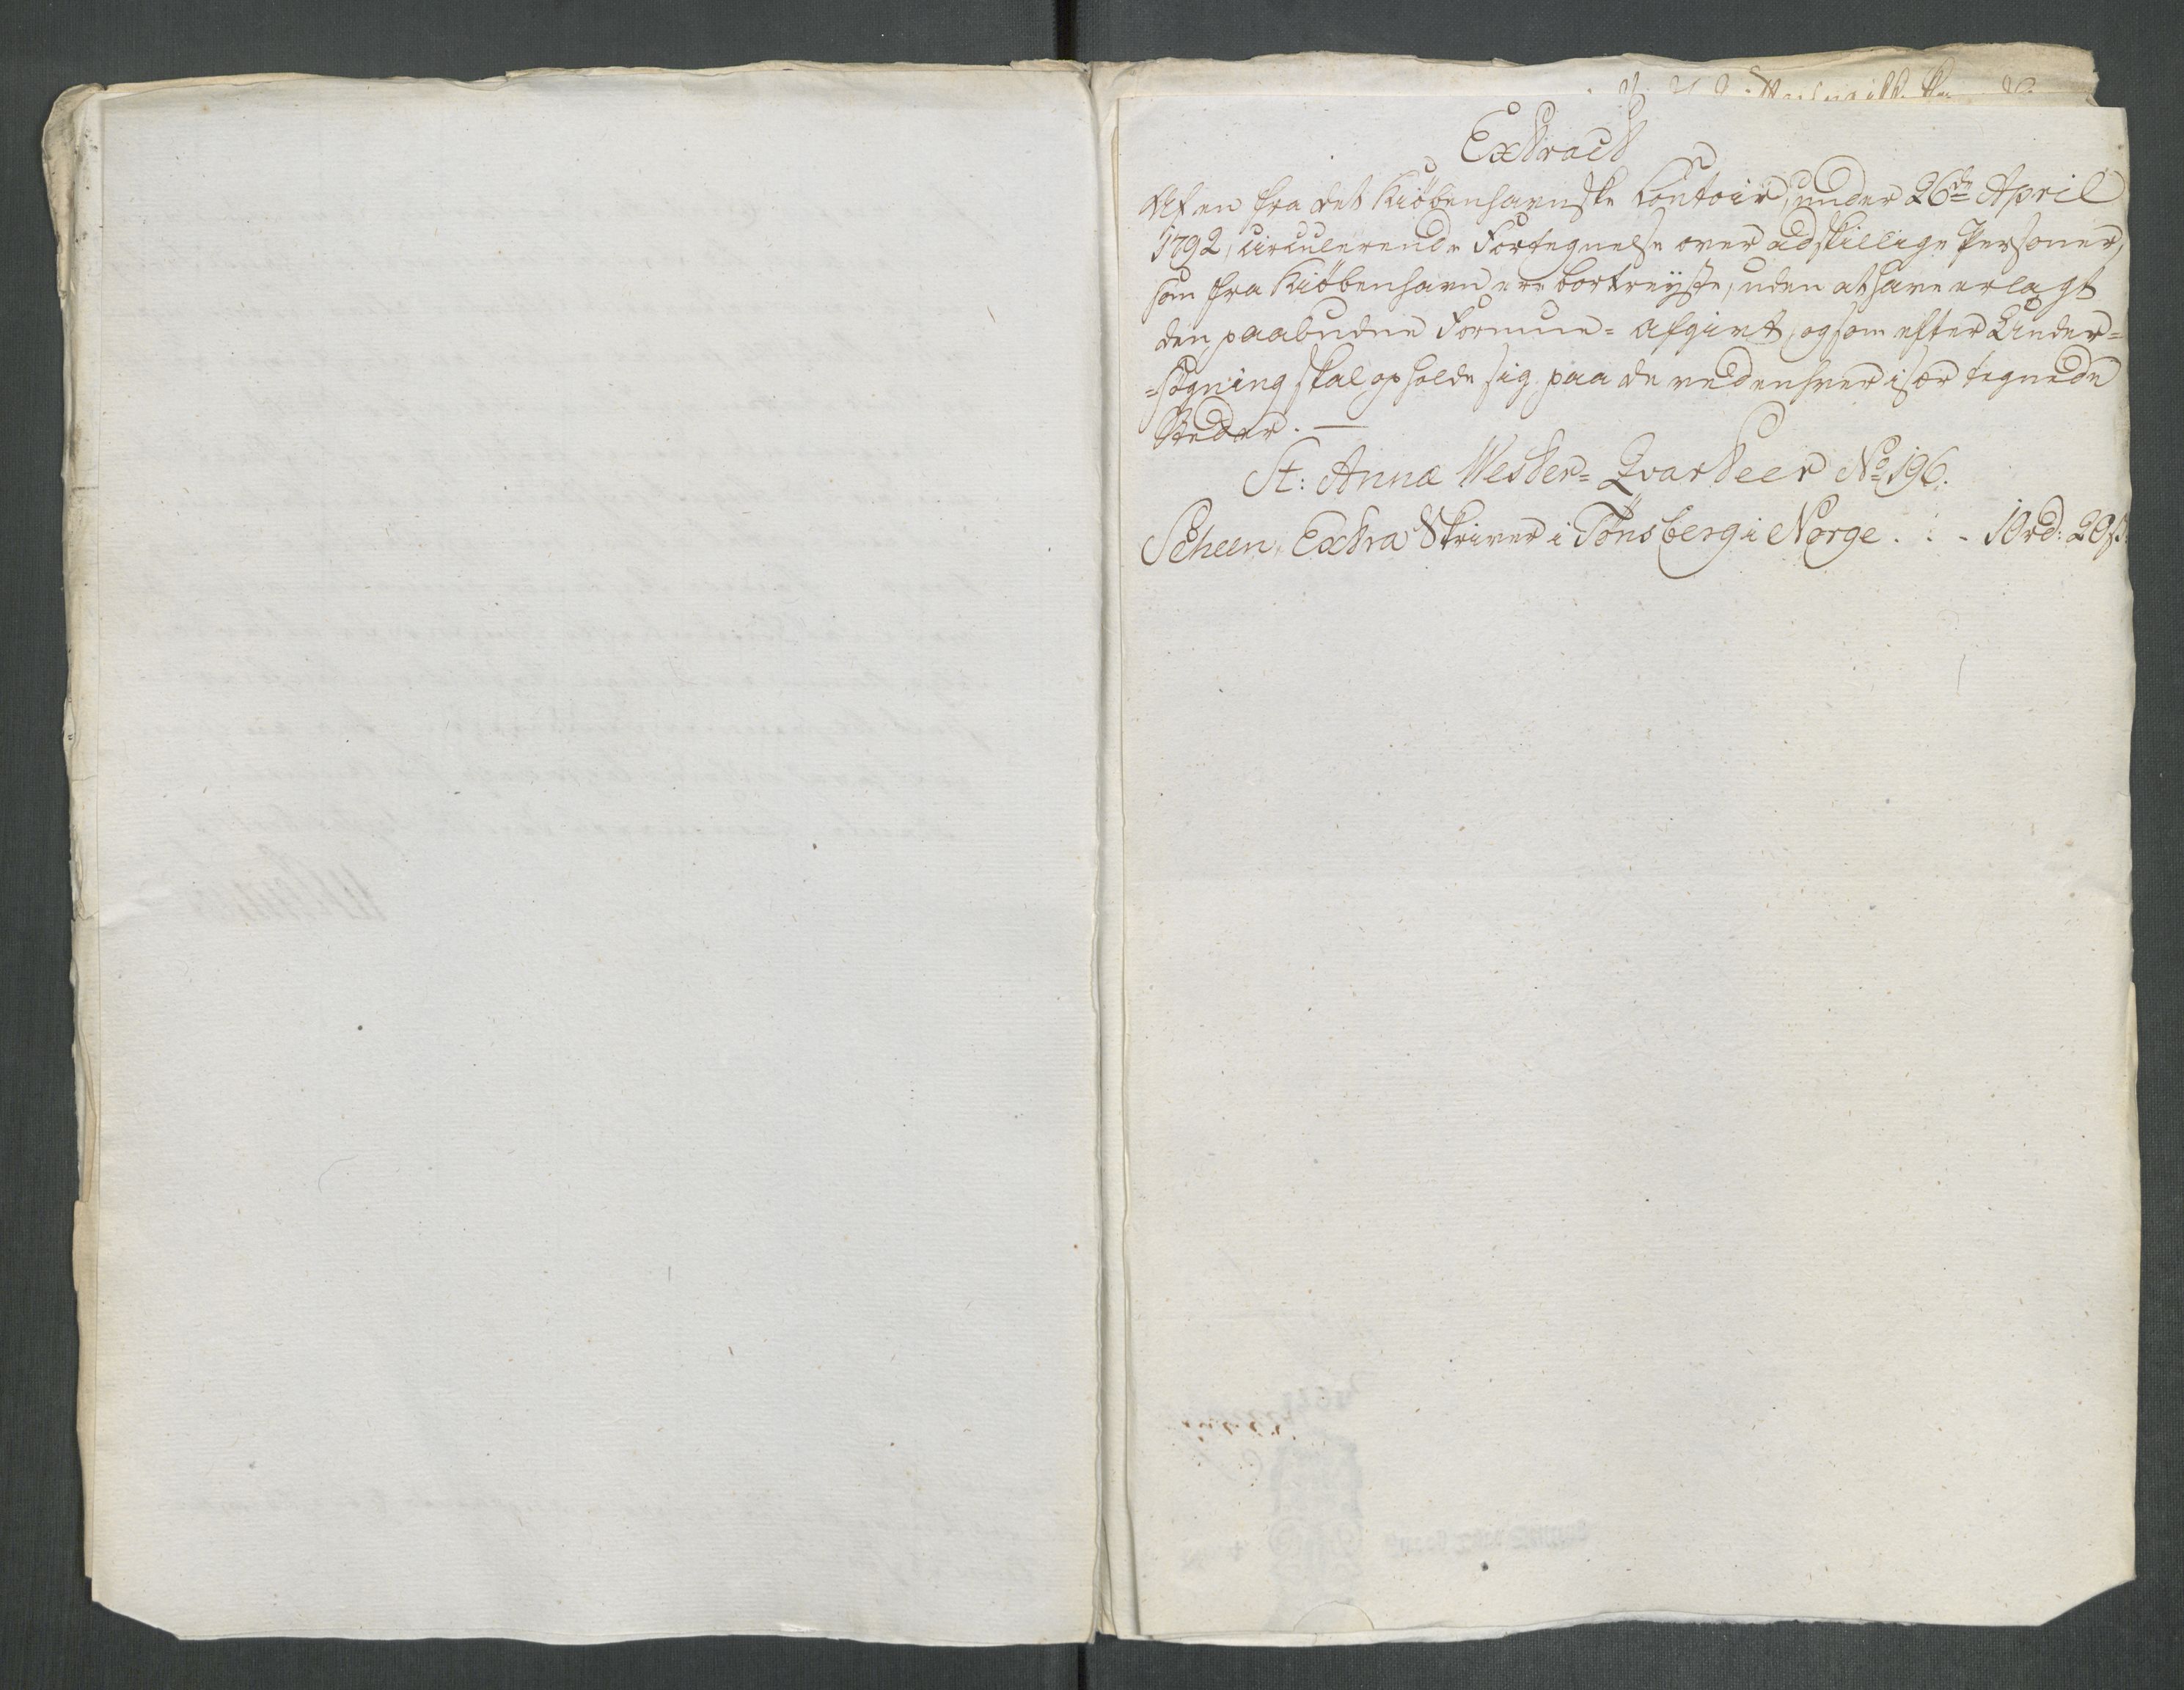 Extract
Af en fra det Kiöbenhavnske Contoir, under 26de April
1792, circulerende Fortegnelse over adskillige Personer,
som fra Kiöbenhavn ere bortreyste, uden at have erlagt
den paabudne Formue- Afgivt, og som efter Under-
-sögning skal opholde sig paa de ved enhver især tegnede
Stæder. —
St: Annæ Wester- Qvarteer No 196.
Scheen, Extra Skriver i Tönsberg i Norge . . . 10rd: 20s: